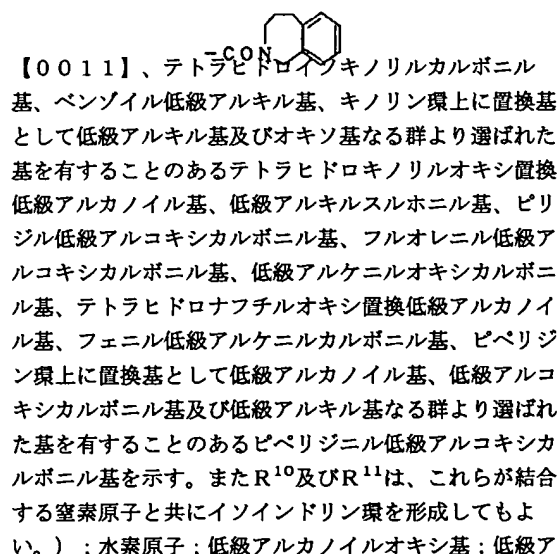 -CON
【0011】、テトラヒドロイソキノリルカルボニル
基、ベンゾイル低級アルキル基、キノリン環上に置換基
として低級アルキル基及びオキソ基なる群より選ばれた
基を有することのあるテトラヒドロキノリルオキシ置換
低級アルカノイル基、低級アルキルスルホニル基、ピリ
ジル低級アルコキシカルボニル基、フルオレニル低級ア
ルコキシカルボニル基、低級アルケニルオキシカルボニ
ル基、テトラヒドロナフチルオキシ置換低級アルカノイ
ル基、フェニル低級アルケニルカルボニル基、ピペリジ
ン環上に置換基として低級アルカノイル基、低級アルコ
キシカルボニル基及び低級アルキル基なる群より選ばれ
た基を有することのあるピペリジニル低級アルコキシカ
ルボニル基を示す。またR¹⁰及びR¹¹は、これらが結合
する窒素原子と共にイソインドリン環を形成してもよ
い。）；水素原子；低級アルカノイルオキシ基；低級ア